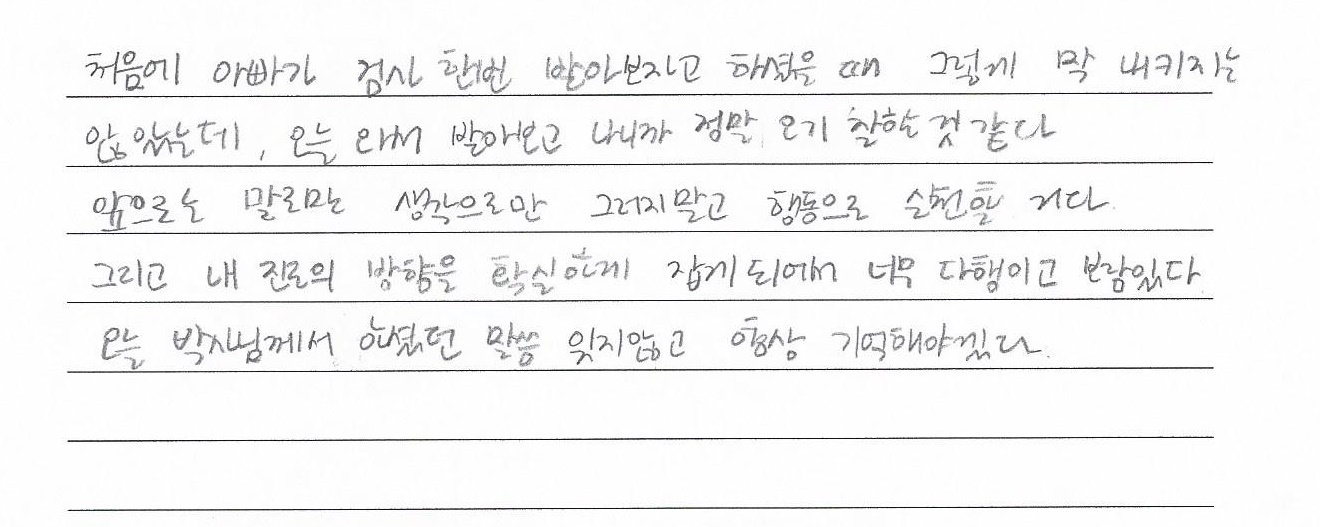 처음에 아빠가 검사 한번 받아보자고 하셨을 때 그렇게 막 내키지는
않았는데, 오늘 와서 받아보고 나니까 정말 오기 잘한것 같다
앞으로는 말로만 생각으로만 그러지말고 행동으로 실천할 거다.
그리고 내 진로의 방향을 확실하게 잡게 되어서 너무 다행이고 보람있다
오늘 박사님께서 하셨던 말씀 잊지않고 항상 기억해야겠다.